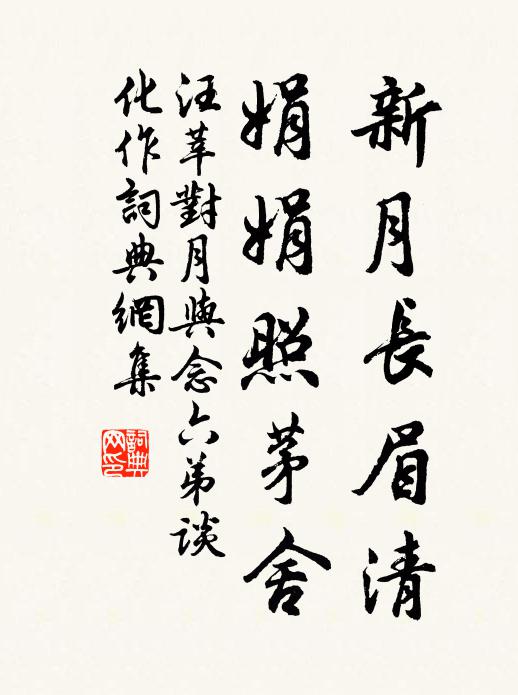 新月長眉清
娟娟照茅舍
汪莘對月與念六弟談
化作詞典網集
詞典
网印